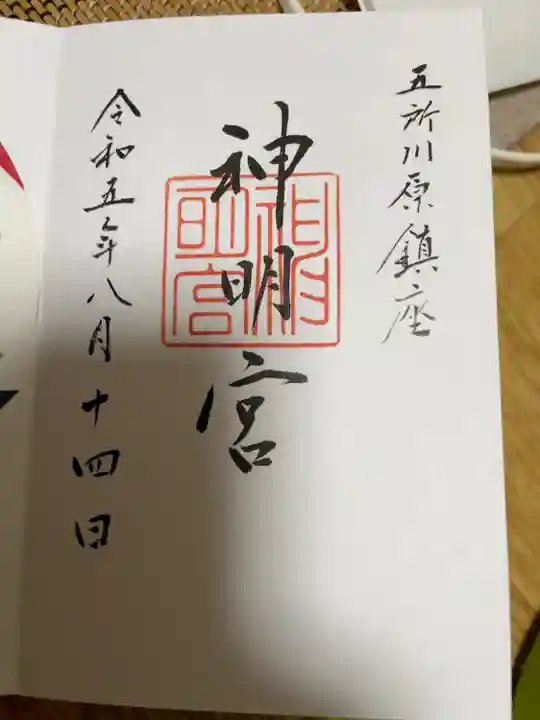 五所川原鎮座
神明宮
令和五年八月十四日